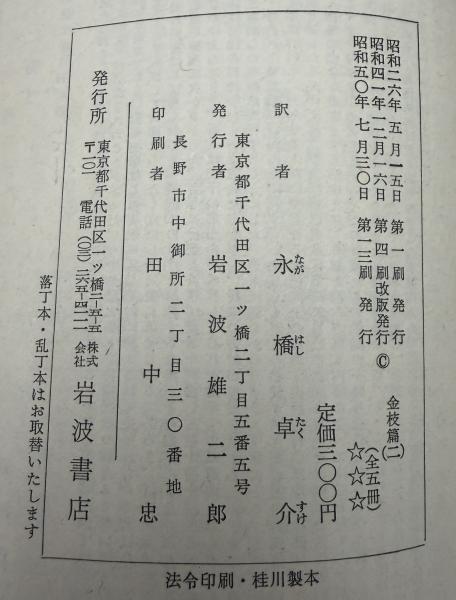 昭和二六年 五月一五日 第一刷発行
昭和四一年一二月一六日 第四刷改版発行 ©
昭和五〇年 七月三〇日 第一三刷発行
金枝篇(二)
(全五冊)
☆☆☆
定価三〇〇円
訳者 永橋卓介
ながはしたくすけ
東京都千代田区一ツ橋二丁目五番五号
発行者 岩波雄二郎
長野市中御所二丁目三〇番地
印刷者 田中忠
発行所
東京都千代田区一ツ橋二-五-五
〒一〇一 電話(〇三)二六五-四一一一
株式会社 岩波書店
落丁本・乱丁本はお取替いたします
法令印刷・桂川製本